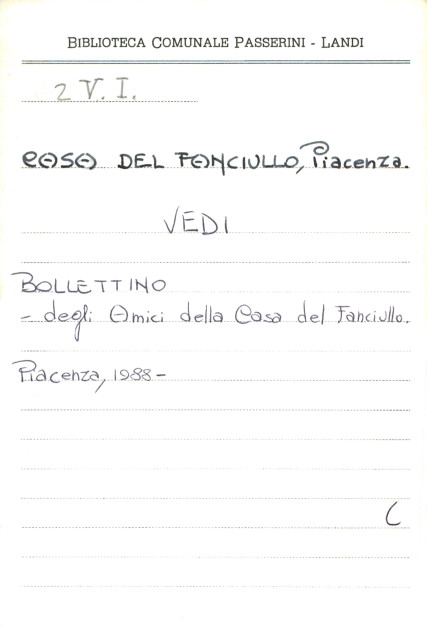 BIBLIOTECA COMUNALE PASSERINI - LANDI
2 V. I.
CASA DEL FANCIULLO, Piacenza.
VEDI
BOLLETTINO
- degli Amici della Casa del Fanciullo.
Piacenza, 1988 -
C